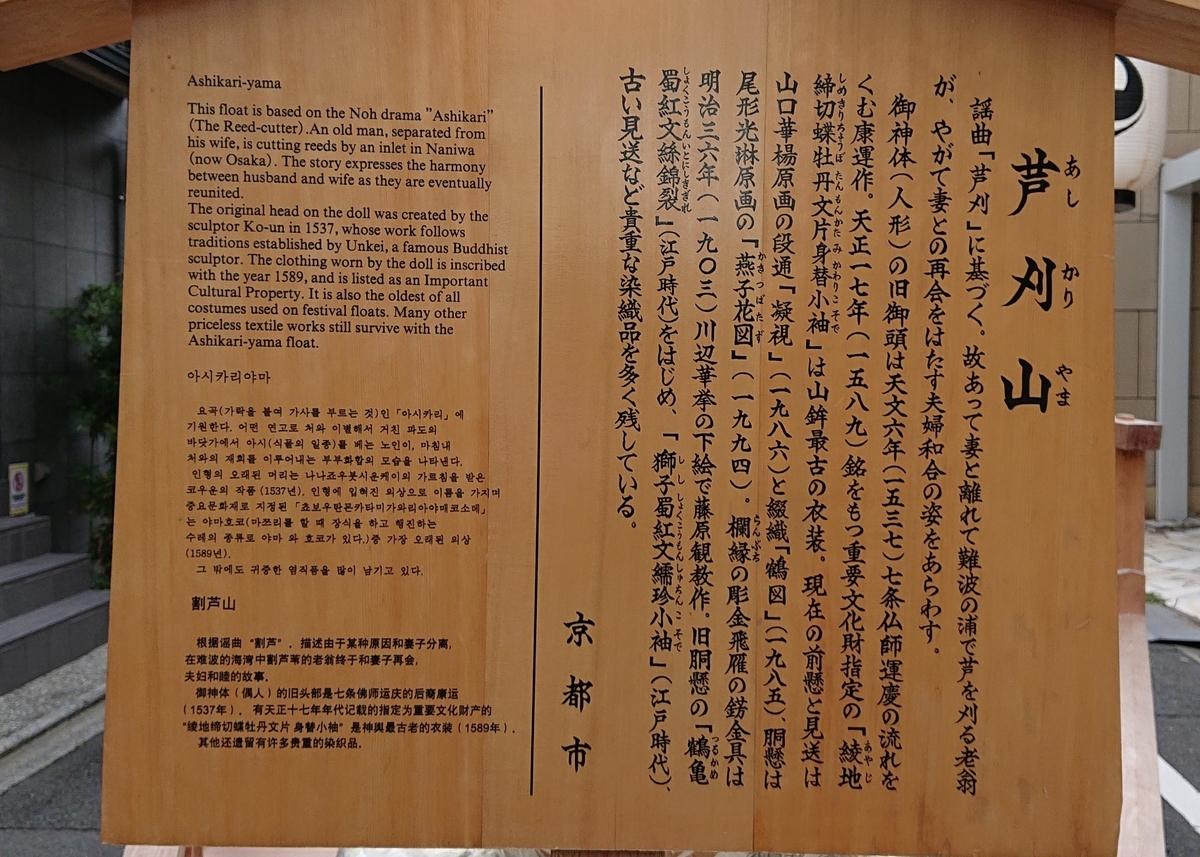 芦刈山
あし かり やま
謡曲「芦刈」に基づく。故あって妻と離れて難波の浦で芦を刈る老翁
が、やがて妻との再会をはたす夫婦和合の姿をあらわす。
御神体(人形)の旧御頭は天文六年(一五三七)七条仏師運慶の流れを
くむ康運作。天正一七年(一五八九)銘をもつ重要文化財指定の『綾地
締切蝶牡丹文片身替小袖』は山鉾最古の衣装。現在の前懸と見送は
山口華楊原画の段通「凝視」(一九八六)と綴織「鶴図」(一九八五)、胴懸は
尾形光琳原画の『燕子花図』(一九九四)。欄縁の彫金飛雁の錺金具は
明治三六年(一九〇三)川辺華挙の下絵で藤原観教作。旧胴懸の『鶴亀
蜀紅文絲錦裂』(江戸時代)をはじめ、「獅子蜀紅文繻珍小袖」(江戸時代)、
古い見送など貴重な染織品を多く残している。
京都市
Ashikari-yama
This float is based on the Noh drama "Ashikari"
(The Reed-cutter) .An old man, separated from
his wife, is cutting reeds by an inlet in Naniwa
(now Osaka). The story expresses the harmony
between husband and wife as they are eventually
reunited.
The original head on the doll was created by the
sculptor Ko-un in 1537, whose work follows
traditions established by Unkei, a famous Buddhist
sculptor. The clothing worn by the doll is inscribed
with the year 1589, and is listed as an Important
Cultural Property. It is also the oldest of all
costumes used on festival floats. Many other
priceless textile works still survive with the
Ashikari-yama float.
아시카리야마
요곡(가락을 붙여 가사를 부르는 것)인「아시카리」에
기원한다. 어떤 연고로 처와 이별해서 거친 파도의
바닷가에서 아시(식물의 일종)를 베는 노인이, 마침내
처와의 재회를 이루어내는 부부화합의 모습을 나타낸다.
인형의 오래된 머리는 나나죠우붓시운케이의 가르침을 받은
코우운의 작품 (1537년). 인형에 입혀진 의상으로 이름을 가지며
중요문화재로 지정된「쵸보우탄몬카타미가와리아야메코소데」
는 야마호코(마쯔리를 할 때 장식을 하고 행진하는
수레의 종류로 야마 와 호코가 있다.)중 가장 오래된 의상
(1589년).
그 밖에도 귀중한 염직품을 많이 남기고 있다.
割芦山
根据谣曲 "割芦"，描述由于某种原因和妻子分离,
在难波的海湾中割芦苇的老翁终于和妻子再会,
夫妇和睦的故事。
御神体（偶人）的旧头部是七条佛师运庆的后裔康运
(1537年)。有天正十七年年代记载的指定为重要文化财产的
"绫地缔切蝶牡丹文片身替小袖" 是神舆最古老的衣装（1589年）.
其他还遗留有许多贵重的染织品。